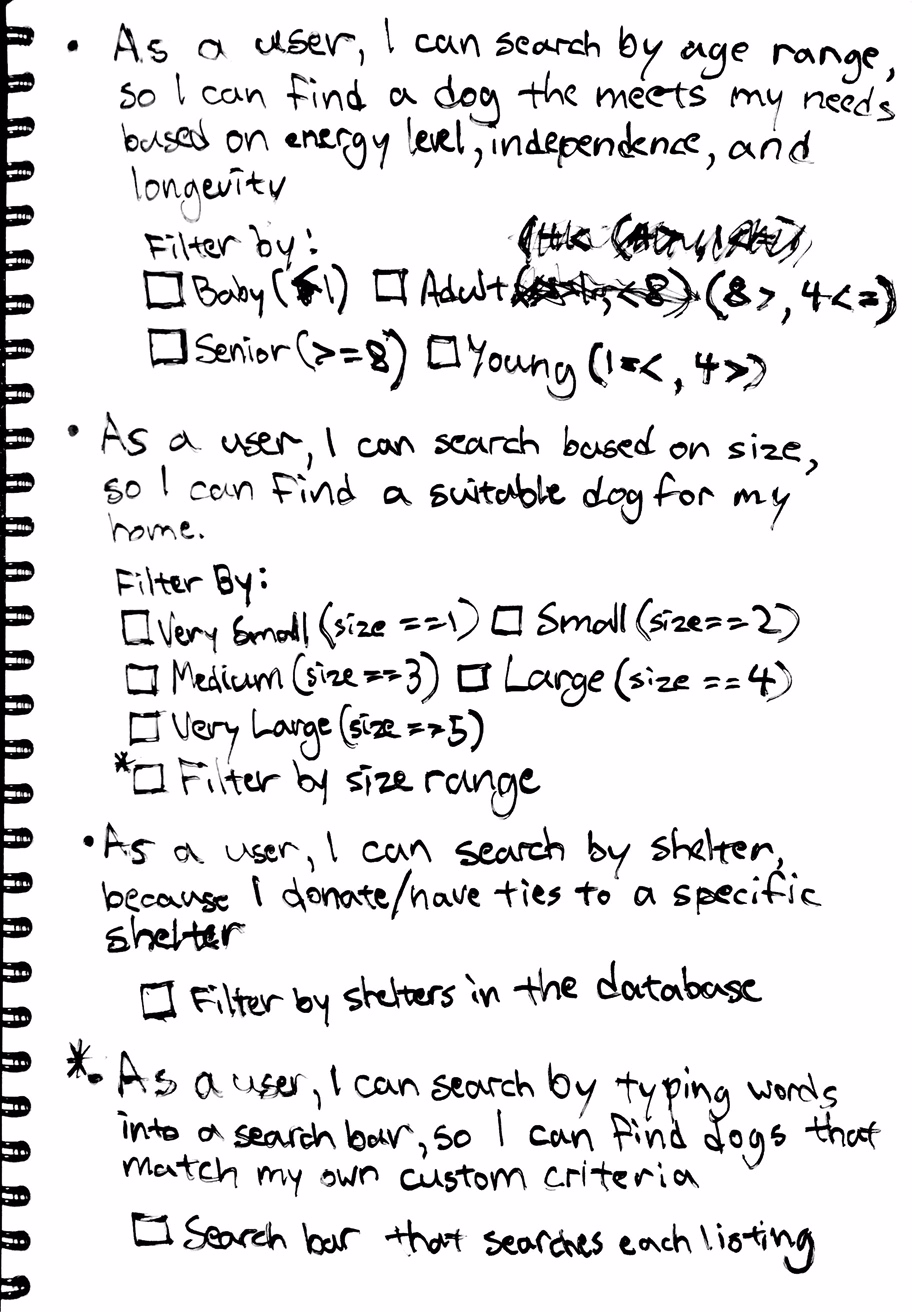 • As a user, I can search by age range,
so I can find a dog the meets my needs
based on energy level, independence, and
longevity
Filter by:
□ Baby (<1) □ Adult (8>, 4<=)
□ Senior (>=8) □ Young (1=<, 4>)
• As a user, I can search based on size,
so I can find a suitable dog for my
home.
Filter By:
□ Very Small (size ==1) □ Small (size==2)
□ Medium (size==3) □ Large (size ==4)
□ Very Large (size ==5)
* □ Filter by size range
• As a user, I can search by shelter,
because I donate/have ties to a specific
shelter
□ Filter by shelters in the database
*• As a user, I can search by typing words
into a search bar, so I can find dogs that
match my own custom criteria
□ Search bar that searches each listing